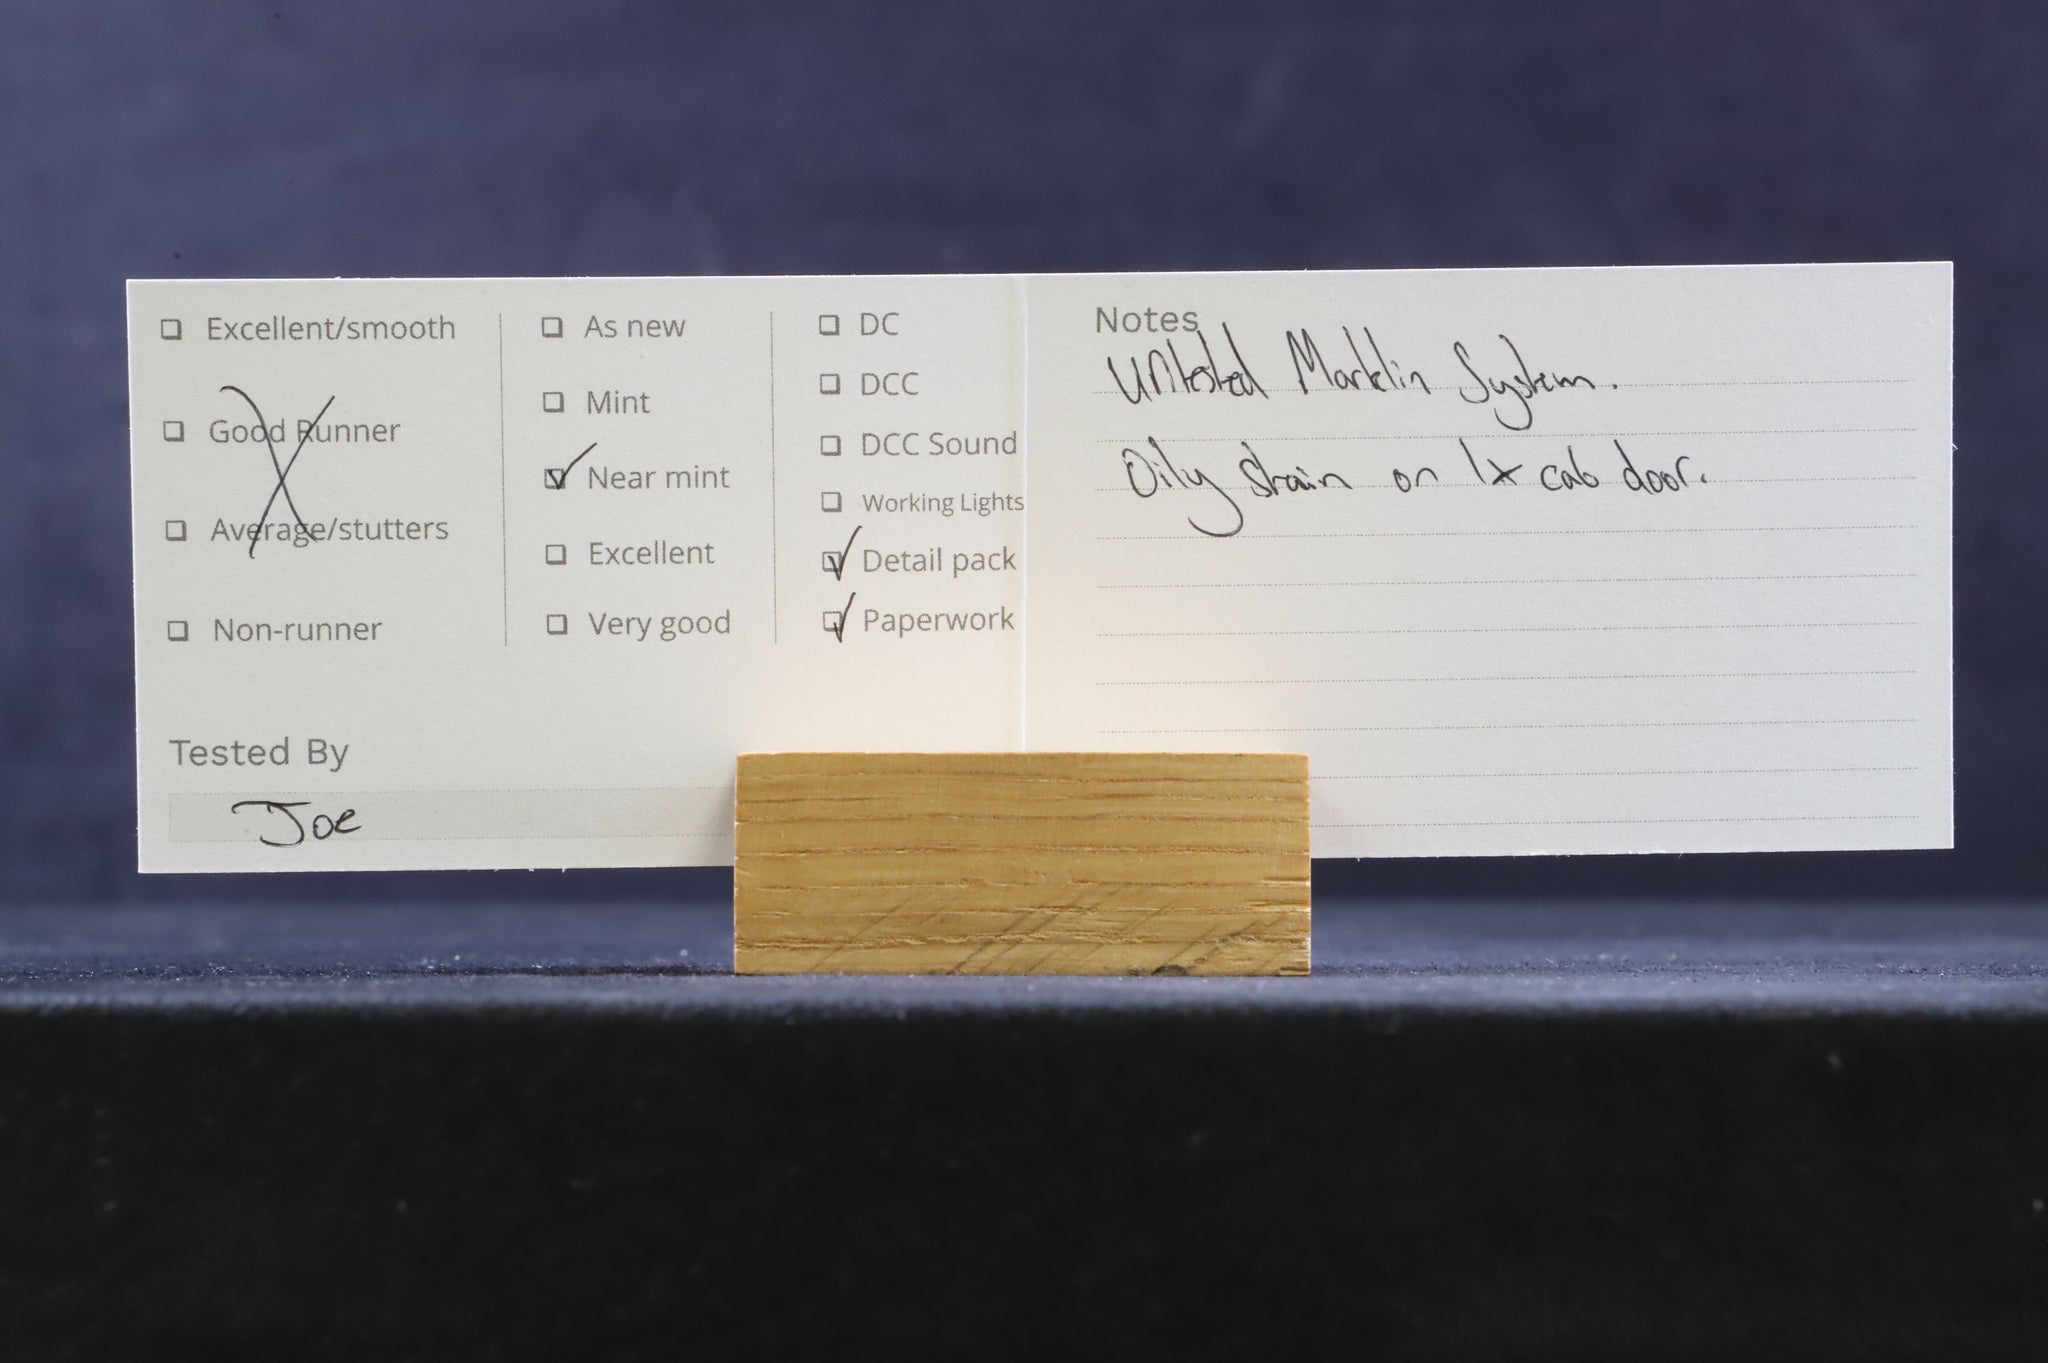 Excellent/smooth
Good Runner
Average/stutters
Non-runner
As new
Mint
Near mint
Excellent
Very good
DC
DCC
DCC Sound
Working Lights
Detail pack
Paperwork
Tested By
Joe
Notes
Untested Marklin System.
Oily strain on 1x cab door.